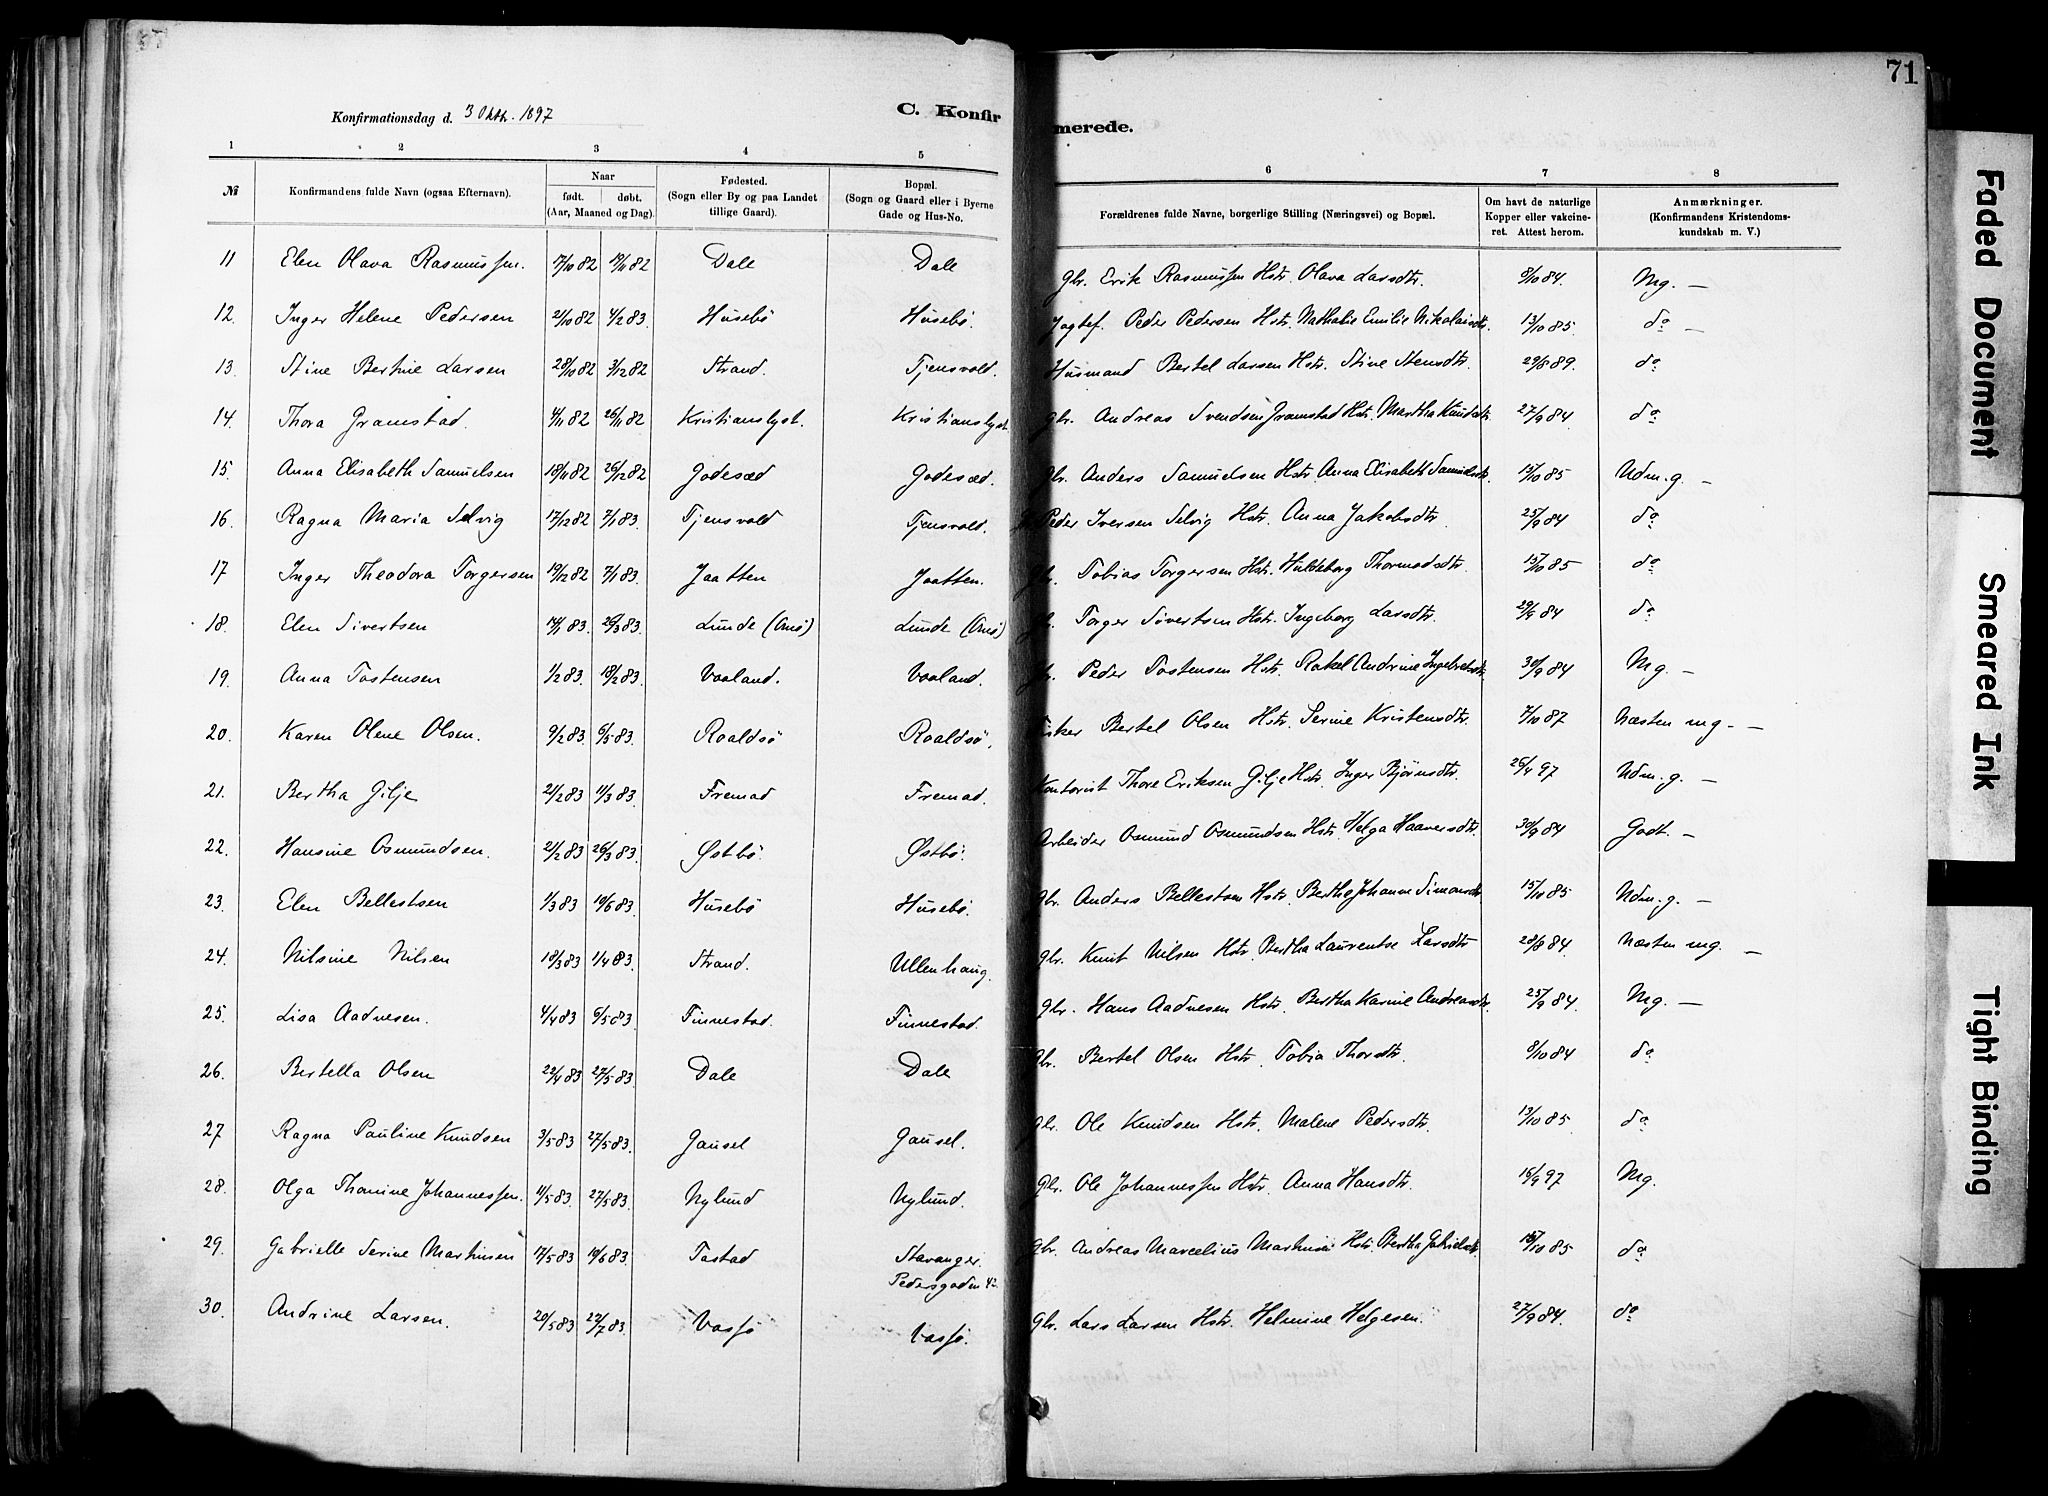 71
Konfirmationsdag d. 3 Oktb. 1897
C. Konfirmerede.
1 2 3 4 5 6 7 8
№ | Konfirmandens fulde Navn (ogsaa Efternavn). | Naar født. døbt. (Aar, Maaned og Dag). | Fødested. (Sogn eller By og paa Landet tillige Gaard). | Bopæl. (Sogn og Gaard eller i Byerne Gade og Hus-No. | Forældrenes fulde Navne, borgerlige Stilling (Næringsvei) og Bopæl. | Om havt de naturlige Kopper eller vakcineret. Attest herom. | Anmærkninger. (Konfirmandens Kristendomskundskab m. V.)
11 Elen Olava Rasmussen. 17/10 82 19/11 82 Dale Dale Gbr. Erik Rasmussen Hstr. Olava Larsdtr. 8/10 84. Mg. —
12. Inger Helene Pedersen 21/10 82 4/2 83. Husebö Husebö. Jagtef. Peder Pedersen Hstr. Nathalie Emilie Nikolaisdtr. 13/10 85. do —
13. Stine Bertine Larsen 28/10 82 3/12 82 Strand. Tjensvold. Husmand Bertel Larsen Hstr. Stine Stensdtr. 29/8 89. do
14. Thora Gramstad. 4/11 82 26/11 82 Kristianslyst. Kristianslyst. Gbr. Andreas Svendsen Gramstad Hstr. Martha Knudsdtr. 27/9 84. do
15. Anna Elisabeth Samuelsen 18/11 82 26/12 82 Godesæd Godesæd. Gbr. Anders Samuelsen Hstr. Anna Elisabeth Samuelsdtr. 15/10 85 Udm. g. —
16. Ragna Maria Selvig 17/12 82 7/1 83. Tjensvold Tjensvold. Peder Iversen Selvig Hstr. Anna Jakobsdtr. 25/9 84 do
17 Inger Theodora Torgersen 19/12 82 7/1 83. Jaatten Jaatten. Gbr. Tobias Torgersen Hstr. Huldeborg Thormodsdtr. 15/10 85 do
18. Elen Sivertsen 14/1 83. 26/3 83. Lunde (Omö) Lunde (Omö) Gbr. Torger Sivertsen Hstr. Ingeborg Larsdtr. 29/9 84 do
19. Anna Tostensen 1/2 83. 18/2 83. Vaaland. Vaaland. Gbr. Peder Tostensen Hstr. Rakel Andrine Ingebretsdtr. 30/9 84 Mg. —
20. Karen Olene Olsen. 9/2 83. 6/5 83. Roaldsö Roaldsö. Fisker Bertel Olsen Hstr. Serine Kristensdtr. 7/10 87 Næsten mg. —
21. Bertha Gilje 21/2 83 11/3 83. Fremad Fremad. Kontorist Thore Eriksen Gilje Hstr. Inger Bjørnsdtr. 26/4 97 Udm. g. —
22. Hansine Osmundsen. 21/2 83 26/3 83. Østbö. Østbö. Arbeider Osmund Osmundsen Hstr. Helga Haaversdtr. 30/9 84 Godt. —
23. Elen Bellestsen 1/3 83 10/6 83. Husebö Husebö. Gbr. Anders Bellestsen Hstr. Bertha Johanne Simonsdtr. 15/10 85 Udm. g. —
24. Nilsine Nilsen 18/3 83 1/4 83. Strand. Ullenhaug. Gbr. Knut Nilsen Hstr. Bertha Laurentse Larsdtr 28/8 84. Næsten mg. —
25. Lisa Aadnesen. 4/4 83 6/5 83. Finnestad. Finnestad. Gbr. Hans Aadnesen Hstr. Bertha Karine Andreasdtr. 25/9 84. Mg. —
26. Bertella Olsen 22/4 83 27/5 83. Dale Dale Gbr. Bertel Olsen Hstr. Tobia Thorsdtr. 8/10 84 do
27 Ragna Pauline Knudsen 3/5 83 27/5 83. Gausel Gausel. Gbr. Ole Knudsen Hstr. Malene Pedersdtr. 13/10 85. do
28. Olga Thomine Johannessen. 11/5 83. 27/5 83. Nylund Nylund. Gbr. Ole Johannessen Hstr. Anna Hansdtr. 16/9 97 Mg.
29. Gabrielle Serine Martinsen 17/5 83 10/6 83. Tastad Stavanger. Gbr. Andreas Marcelius Martinsen Hstr. Bertha Gabrielsdtr. 15/10 85 do
Pedersgaden 42
30. Andrine Larsen. 20/5 83 22/7 83. Vassö Vassö. Gbr. Lars Larsen Hstr. Helmine Helgesen. 27/9 84. do
Faded Document
Smeared Ink
Tight Binding